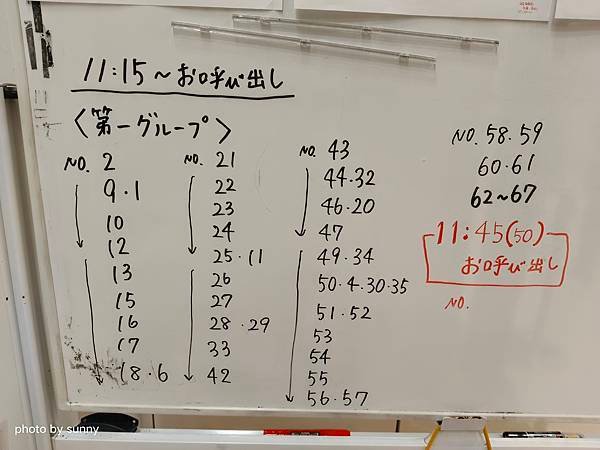 11:15～お呼び出し
〈第一グループ〉
NO. 2
9・1
10
12
13
15
16
17
18・6
NO. 21
22
23
24
25・11
26
27
28・29
33
42
NO. 43
44・32
46・20
47
49・34
50・4・30・35
51・52
53
54
55
56・57
NO. 58・59
60・61
62～67
11:45(50)
お呼び出し
NO.
photo by sunny